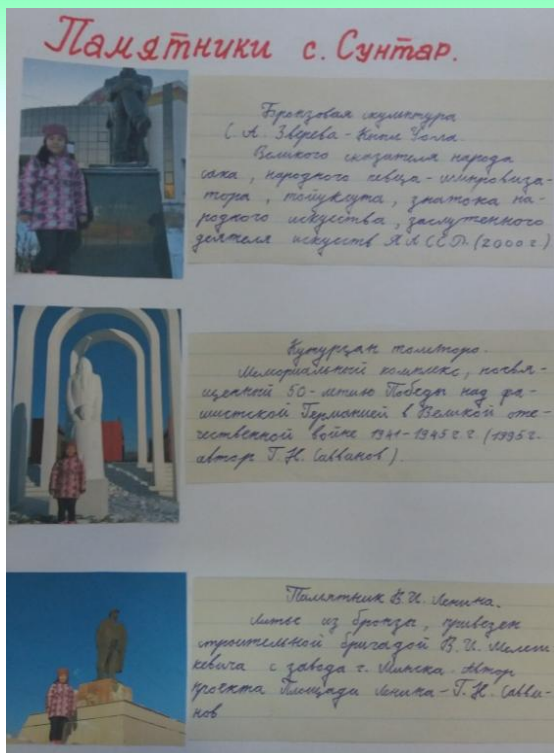 Памятники с. Сунтар.
Бронзовая скульптура
С. А. Зверева - Кыыл Уола.
Великого сказателя народа
саха, народного певца-импровиза-
тора, тойуксута, знатока на-
родного искусства, заслуженного
деятеля искусств ЯАССР. (2000 г.)
толстого.
Мемориальный комплекс, посвя-
щенный 50-летию Победы над фа-
шистской Германией в Великой оте-
чественной войне 1941-1945 г.г. (1995 г.
автор Г. Н. Саввинов).
Памятник В. И. Ленина.
Литье из бронзы, привезен
строительной бригадой В. И. Мелеш
кевича с завода г. Минска. Автор
проекта Площади Ленина - Г. Н. Савви-
нов